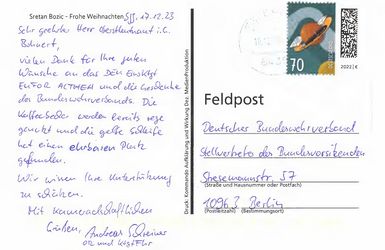 Sretan Bozic - Frohe Weihnachten Sjj, 17.12.23
Sehr geehrter Herr Oberstleutnant i.G.
Bohnert,
vielen Dank für Ihre guten
Wünsche an das Deu EinsKtgt
EUFOR ALTHEA und die Geschenke
des Bundeswehrverbands. Die
Kaffeebecher werden bereits rege
genutzt und die gelbe Schleife
hat einen ehrbaren Platz
gefunden.
Wir wissen Ihre Unterstützung
zu schätzen.
Mit kameradschaftlichen
Grüßen, Andreas
OTL und KtgtFhr
Druck: Kommando Aufklärung und Wirkung Dez. MedienProduktion
70
2022 €
Feldpost
Deutscher Bundeswehrverband
Stellvertreter des Bundesvorsitzenden
Stresemannstr. 57
(Straße und Hausnummer oder Postfach)
10963 Berlin
(Postleitzahl) (Bestimmungsort)